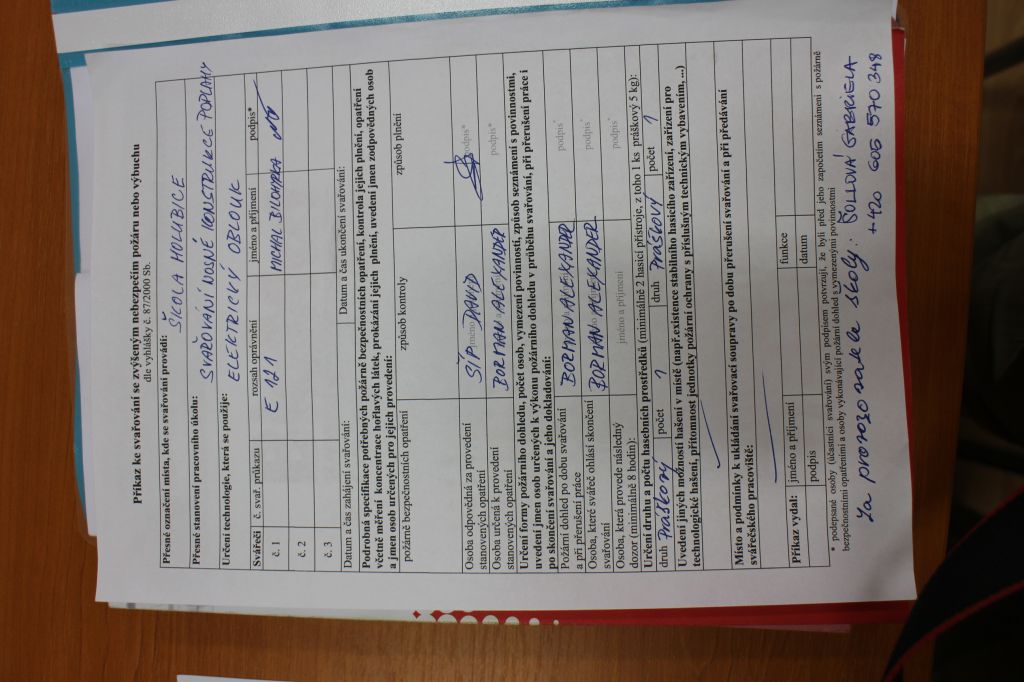 Příkaz ke svařování se zvýšeným nebezpečím požáru nebo výbuchu
dle vyhlášky č. 87/2000 Sb.
Přesné označení místa, kde se svařování provádí: ŠKOLA HOLUBICE
Přesné stanovení pracovního úkolu: SVAŘOVÁNÍ NOSNÉ KONSTRUKCE PODLAHY
Určení technologie, která se použije: ELEKTRICKÝ OBLOUK
Svářeči č. svař. průkazu rozsah oprávnění jméno a příjmení podpis*
č. 1 E 121 MICHAL
č. 2
č. 3
Datum a čas zahájení svařování: Datum a čas ukončení svařování:
Podrobná specifikace potřebných požárně bezpečnostních opatření, kontrola jejich plnění, opatření
včetně měření koncentrace hořlavých látek, prokázání jejich plnění, uvedení jmen zodpovědných osob
a jmen osob určených pro jejich provedení:
požárně bezpečnostních opatření způsob kontroly způsob plnění
Osoba odpovědná za provedení
stanovených opatření ŠÍP DAVID podpis*
Osoba určená k provedení
stanovených opatření BORMAN ALEXANDER podpis*
Určení formy požárního dohledu, počet osob, vymezení povinností, způsob seznámení s povinnostmi,
uvedení jmen osob určených k výkonu požárního dohledu v průběhu svařování, při přerušení práce i
po skončení svařování a jeho dokladování:
Požární dohled po dobu svařování
a při přerušení práce BORMAN ALEXANDER podpis*
Osoba, které svářeč ohlásí skončení
svařování BORMAN ALEXANDER podpis*
Osoba, která provede následný
dozor (minimálně 8 hodin): jméno a příjmení podpis*
Určení druhu a počtu hasebních prostředků (minimálně 2 hasicí přístroje, z toho 1 ks práškový 5 kg):
druh PRAŠKOVÝ počet 1 druh PRAŠKOVÝ počet 1
Uvedení jiných možností hašení v místě (např.existence stabilního hasicího zařízení, zařízení pro
technologické hašení, přítomnost jednotky požární ochrany s příslušným technickým vybavením, ...)
Místo a podmínky k ukládání svařovací soupravy po dobu přerušení svařování a při předávání
svářečského pracoviště:
Příkaz vydal: jméno a příjmení funkce
podpis datum
* podepsané osoby (účastníci svařování) svým podpisem potvrzují, že byli před jeho započetím seznámeni s požárně
bezpečnostními opatřeními a osoby vykonávající požární dohled s vymezenými povinnostmi
Za provozovatele školy: GABRIELA
+420 605 570 348